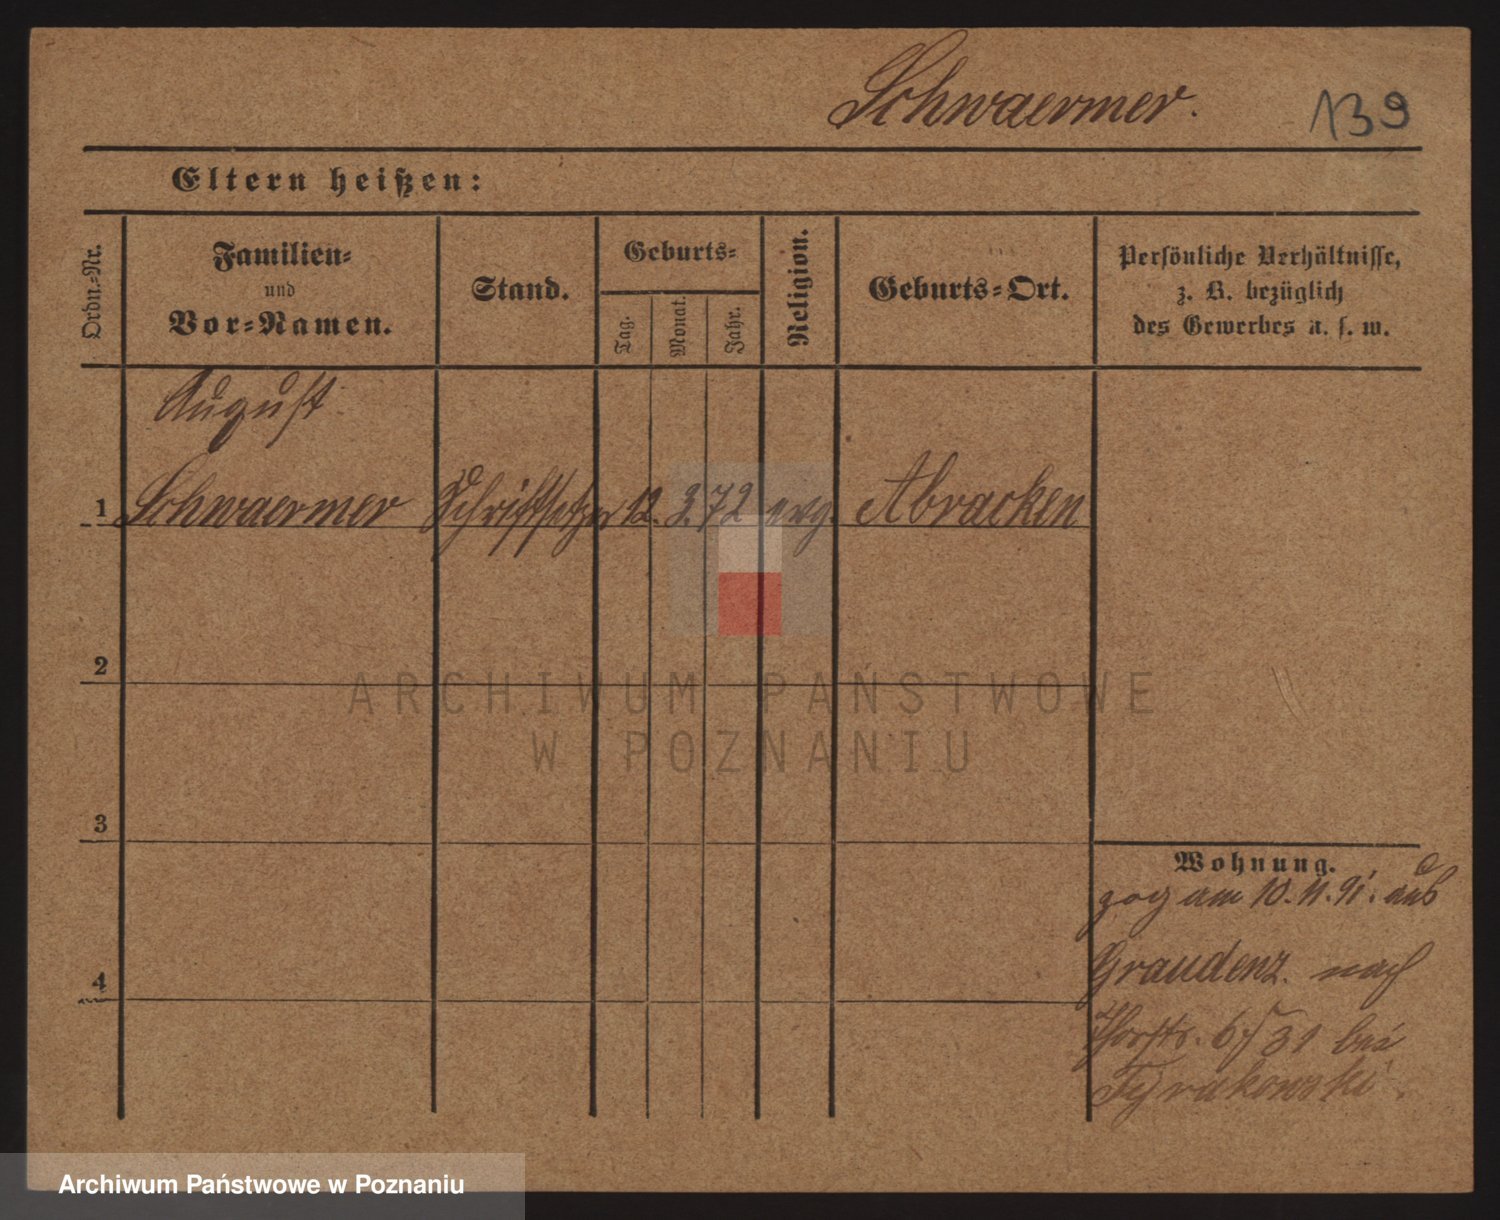 Schwaermer.
139
Eltern heißen:
Ordn.-Nr.
Familien-
und
Vor-Namen.
Stand.
Geburts-
Tag.
Monat.
Jahr.
Religion.
Geburts-Ort.
Persönliche Verhältnisse,
z. B. bezüglich
des Gewerbes u. s. w.
August
1 Schwaermer Schriftsetzer 12. 3. 72 evg. Abracken
2
3
4
Wohnung.
zog am 10. 11. 91. aus
Graudenz. nach
31 bei
Tyrakowski.
ARCHIWUM PAŃSTWOWE
W POZNANIU
Archiwum Państwowe w Poznaniu